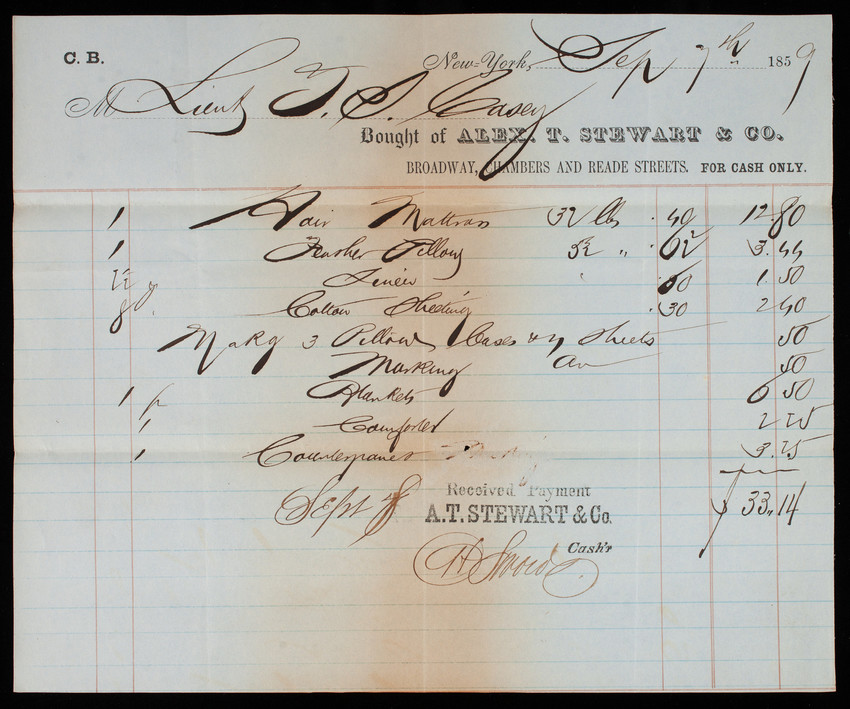 C. B.
New-York, Sep 7th 1859
M Lieut T. S. Casey
Bought of ALEX. T. STEWART & CO.
BROADWAY, CHAMBERS AND READE STREETS. FOR CASH ONLY.
1 Hair Mattrass 32 lbs .40 12.80
1 Feather Pillow 5½ " .62 3.44
Linen .60 1.50
8 Cotton Sheeting .30 2 40
Makg 3 Pillow Cases & 4 Sheets 50
Marking 50
1 p Blankets 6 50
1 Comforter 2 25
1 Counterpanes 3.25
$33.14
Sept 8
Received Payment
A.T. STEWART & Co.
Cash'r